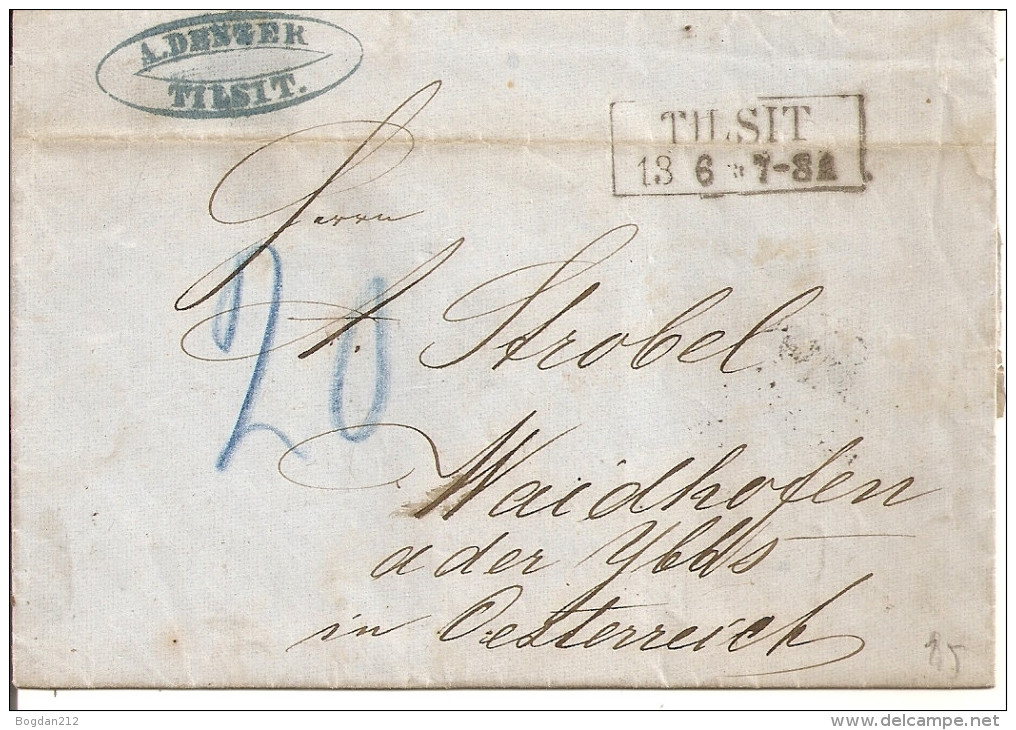 A. DENZER
TILSIT.
TILSIT
13 6 * 7-8A
Herrn
A. Strobel
20
Waidhofen
a der Ybbs
in Oesterreich
Bogdan212
delcampe.net